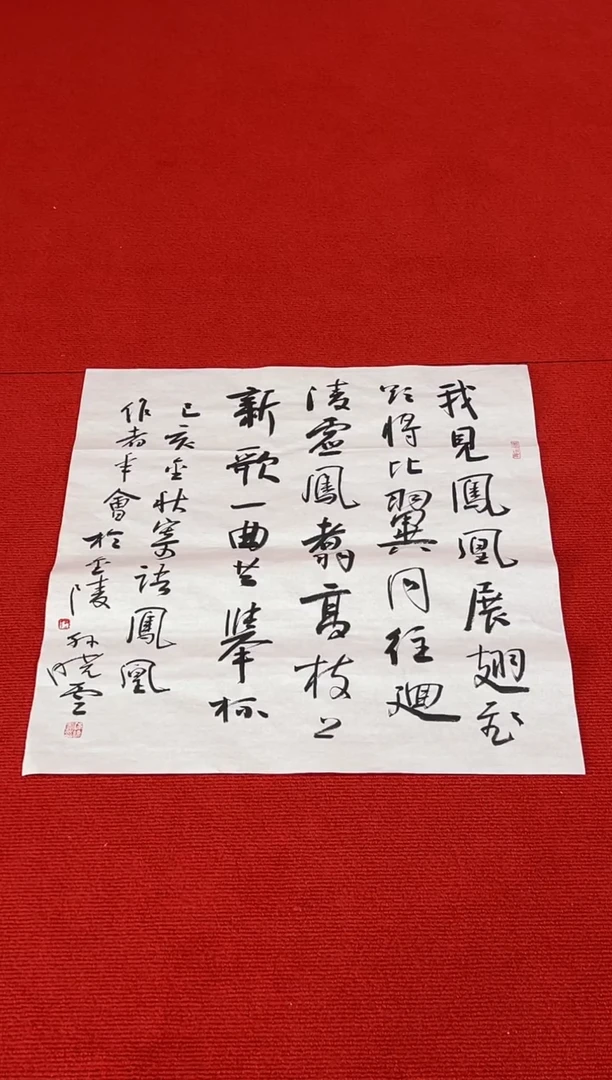 我見鳳凰展翅飛
將比翼同往迴
凌虛鳳翥高枝上
新歌一曲共舉杯
己亥金秋寄語鳳凰
作者年會於金陵 孙晓雲